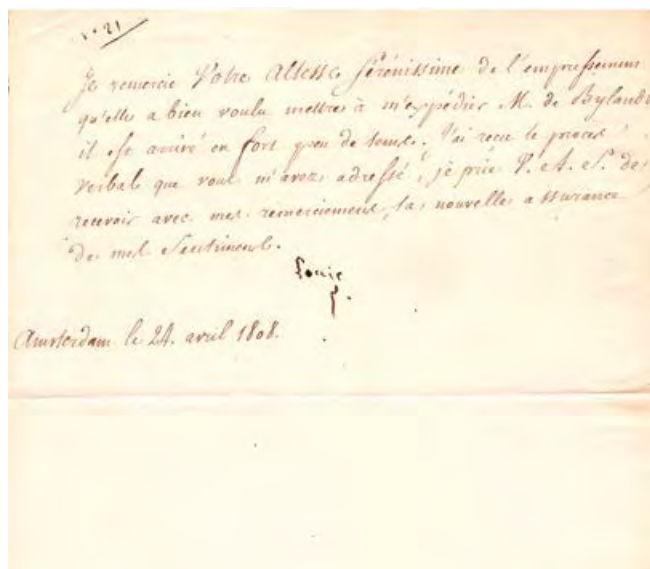 No 21
Je remercie Votre Altesse Sérénissime de l'empressement
qu'elle a bien voulu mettre à m'expédier M. de Bylandt
il est arrivé en fort peu de tems. J'ai recu le procès
verbal que vous m'avez adressé, je prie V. A. S. de
recevoir avec mes remerciemens, la nouvelle assurance
de mes sentimens.
Louis
Amsterdam le 24. avril 1808.